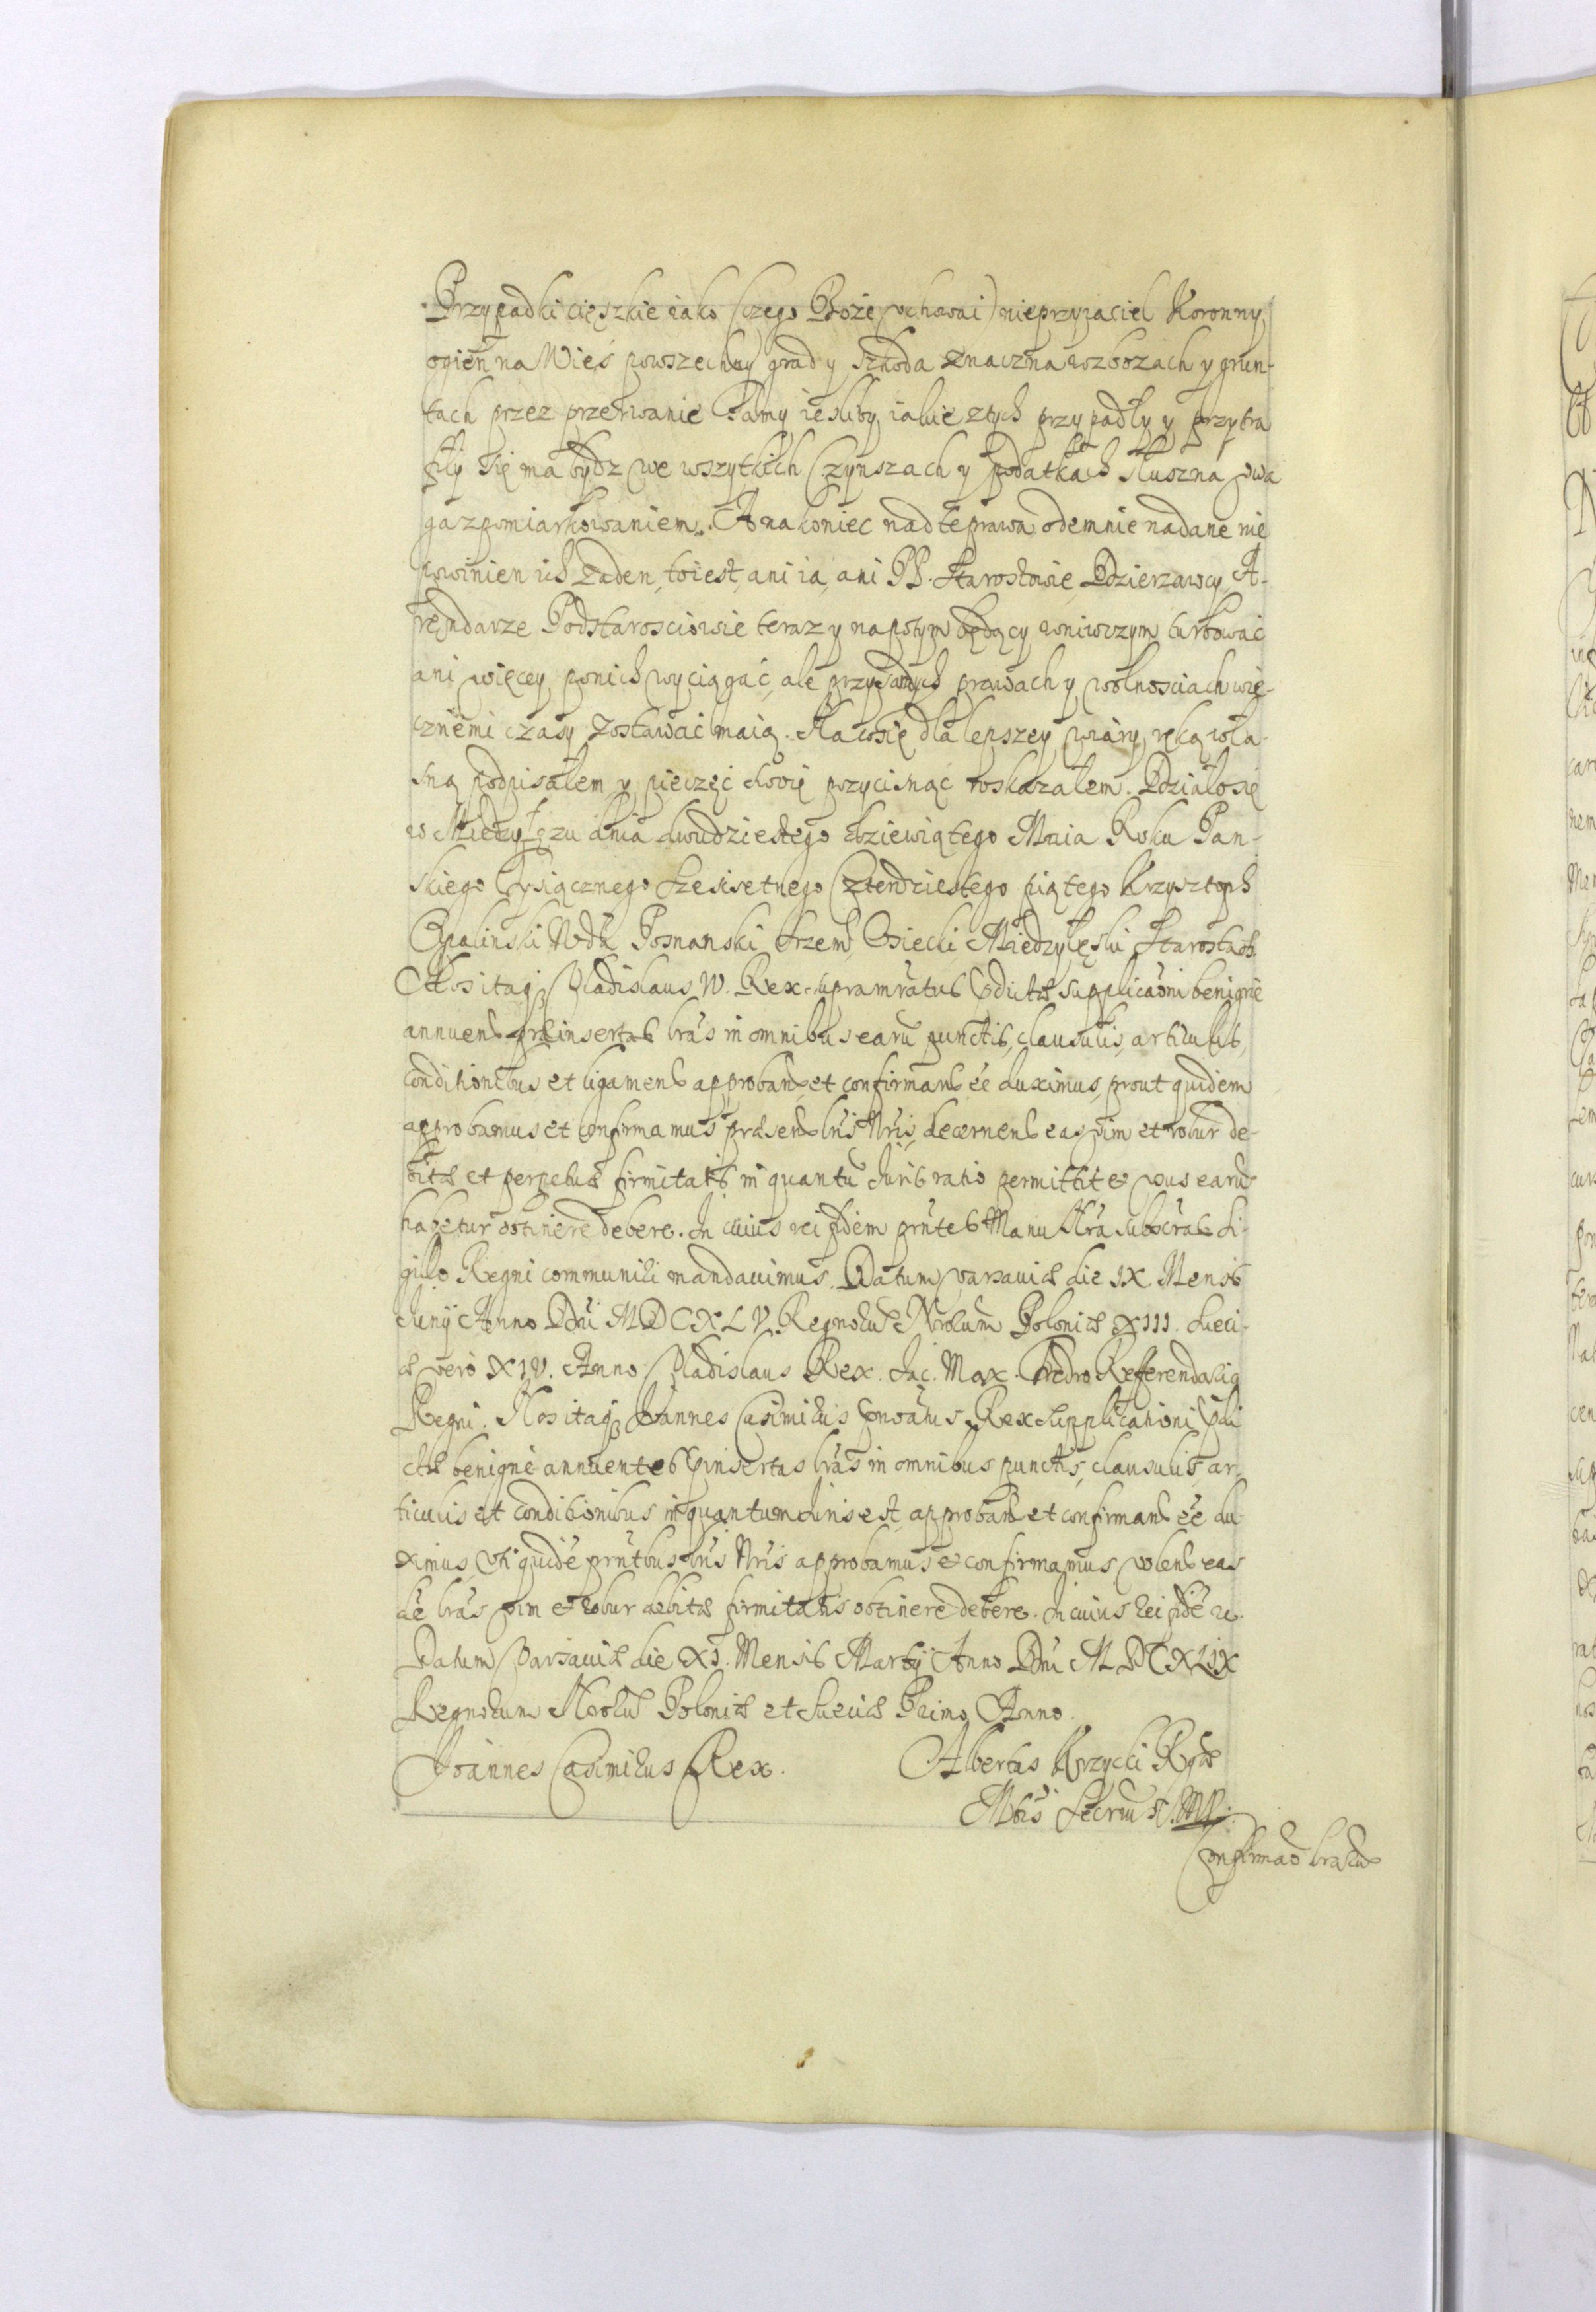 Przypadki cięszkie iako (czego Boże vchowai) nieprzyiaciel Koronny,
ogień na Wieś powszechny grad y szkoda znaczna wzbożach y grun-
tach przez przerwanie Tamy iesliby iakie ztych przypadły y przytra
fiły się ma bydz we wszytkich Czynszach y podatkach słuszna uwa
ga zpomiarkowaniem. A nakoniec nad te prawa odemnie nadane nie
powinien ich żaden, toiest, ani ia, ani PP. Starostowie, Dzierzawcy, A-
rendarze Podstarosciowie teraz y napotym będący wniwczym turbować
ani więcey ponich wyciągać, ale przy tych prawach y wolnosciach wie-
cznemi czasy zostawać maią. Na co się dla lepszey wiary ręką wła-
sną podpisałem y pieczęć swoię przycisnąć roskazałem. Działo się
w Miedzyłęzu dnia dwudziestego dziewiątego Maia Roku Pan-
skiego Tysiącznego Szescsetnego Czterdziestego piątego Krzysztoph
Opalinski Wda Posnanski Srzem, Osiecki, Miedzyłęski Starosta
Nos itaq Vladislaus IV. Rex supramratus pdictæ supplicaōni benigne
annuens præinsertas lras in omnibus earū punctis, clausulis, articulis,
conditionibus et ligamens approband et confirmand ēe duximus, prout quidem
approbamus et confirmamus præsen lris Nris, decernens eas vim et robur de-
bitæ et perpetuæ firmitatis in quantū Iuris ratio permittit et vsus earū
habetur obtinere debere. In cuius rei fidem pntes Manu Nra subscras Si-
gillo Regni communiri mandauimus. Datum Varsauiæ die IX Mensis
Iunij Anno Dni MDCXLV. Regnorū Nrorum Poloniæ XIII. Sueci-
æ vero XIV. Anno. Vladislaus Rex. Iac. Max. Fredro Referendariq
Regni. Nos itaq Ioannes Casimirus Rex supplicationi pdi
ctæ benigne annuentes pinsertas lras in omnibus punctis, clausulis ar
ticulis et conditionibus inquantum Iuris est, approband et confirmand ēe du
ximus, vti quidē pntbus lris Nris approbamus et confirmamus, volens eas
dē lras vim et robur debitæ firmitatis obtinere debere. In cuius rei fidē
Datum Varsauiæ die XI. Mensis Martij Anno Dni MDCXLIX
Regnorum Nrorū Poloniæ et Sueciæ Primo Anno.
Ioannes Casimirus Rex. Albertus Krzycki
Mtis Secrius MP.
Confirmaō lrarum